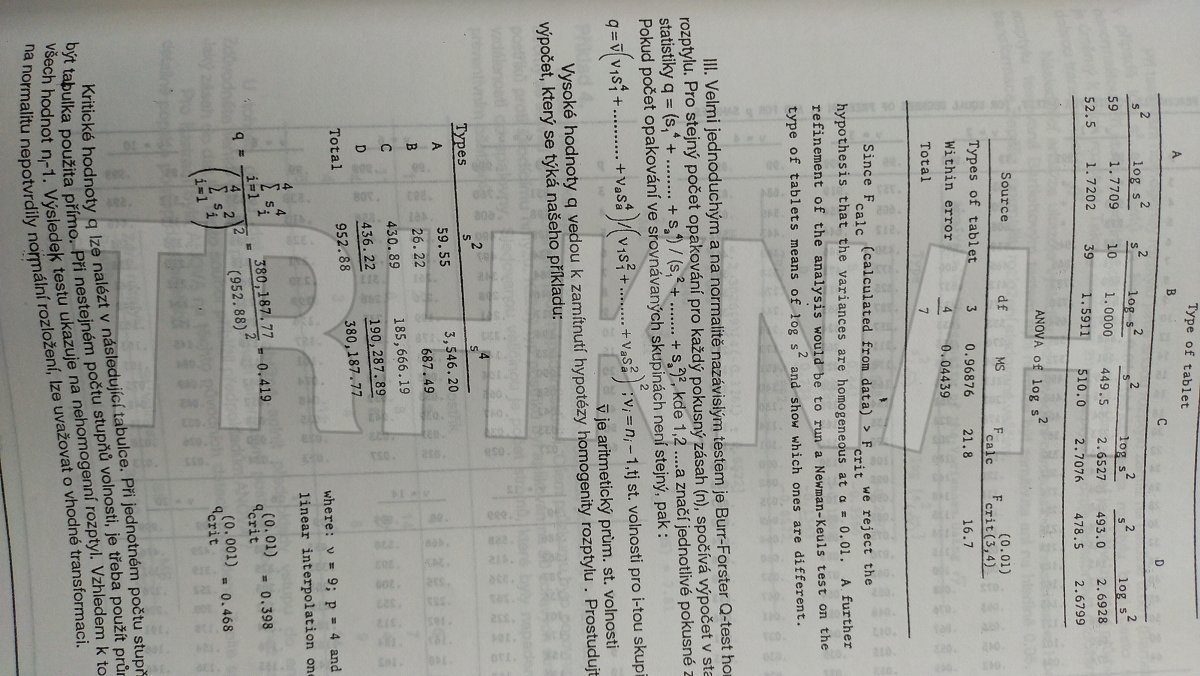 Type of tablet
A B C D
s² log s² s² log s² s² log s² s² log s²
59 1.7709 10 1.0000 449.5 2.6527 493.0 2.6928
52.5 1.7202 39 1.5911 510.0 2.7076 478.5 2.6799
ANOVA of log s²
Source df MS F calc F crit(3,4) (0.01)
Types of tablet 3 0.96876 21.8 16.7
Within error 4 0.04439
Total 7
Since F calc (calculated from data) > F crit we reject the
hypothesis that the variances are homogeneous at α = 0.01. A further
refinement of the analysis would be to run a Newman-Keuls test on the
type of tablets means of log s² and show which ones are different.
III. Velmi jednoduchým a na normalitě nazávislým testem je Burr-Forster Q-test
rozptylu. Pro stejný počet opakování pro každý pokusný zásah (n) spočívá výpočet v
statistiky q = (s₁⁴ + ........ + sₐ⁴) / (s₁² + ........ + sₐ²)², kde 1,2 ....a značí jednotlivé pokusné
Pokud počet opakování ve srovnávaných skupinách není stejný, pak :
q = v̄(v₁s₁⁴ + ........... + vₐsₐ⁴)/(v₁s₁² + ........ + vₐsₐ²)²; vᵢ = nᵢ − 1, tj st. volnosti pro i-tou
v̄ je aritmetický prům. st. volnosti
Vysoké hodnoty q vedou k zamítnutí hypotézy homogenity rozptylu . Prostudujt
výpočet, který se týká našeho příkladu:
Types s² s⁴
A 59.55 3,546.20
B 26.22 687.49
C 430.89 185,666.19
D 436.22 190,287.89
Total 952.88 380,187.77
q = Σ⁴ᵢ₌₁ sᵢ⁴ / (Σ⁴ᵢ₌₁ sᵢ²)² = 380,187.77 / (952.88)² = 0.419
where: ν = 9; p = 4 and
linear interpolation
q crit (0.01) = 0.398
q crit (0.001) = 0.468
Kritické hodnoty q lze nalézt v následující tabulce. Při jednotném počtu
být tabulka použita přímo. Při nestejném počtu stupňů volnosti, je třeba použít
všech hodnot nᵢ-1. Výsledek testu ukazuje na nehomogenní rozptyl. Vzhledem k
na normalitu nepotvrdily normální rozložení, lze uvažovat o vhodné transformaci.